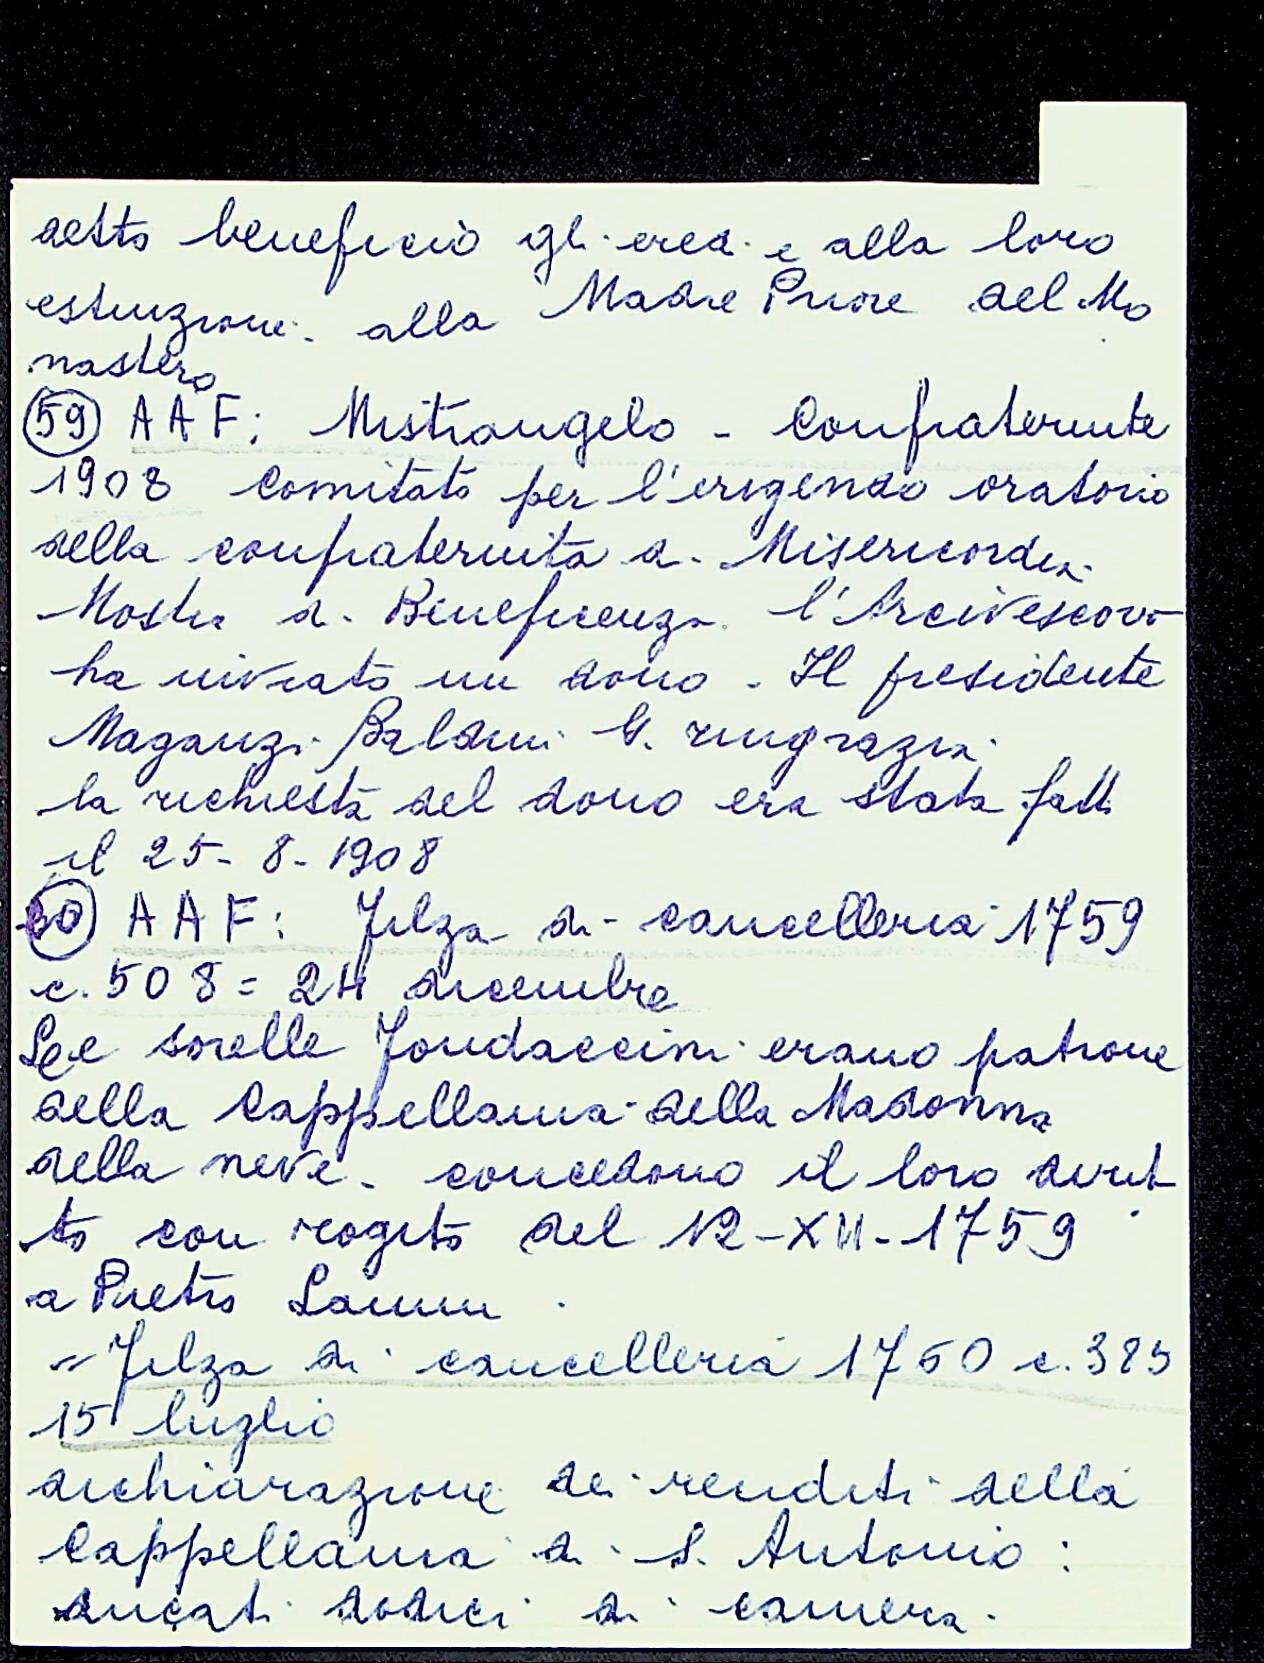 detto beneficio gli eredi e alla loro
estinzione. alla Madre Priore del Mo
nastero
59 AAF: Mistrangelo - Confraternite
1908 Comitato per l'erigendo oratorio
della confraternita di Misericordia.
Mostra di Beneficenza. l'Arcivescovo
ha inviato un dono. Il presidente
Maganzi Baldini G. ringrazia.
la richiesta del dono era stata fatt
il 25-8-1908
60 AAF: Filza di cancelleria 1759
c. 508 = 24 dicembre
Le sorelle Fondaccini erano patrone
della Cappellania della Madonna
della neve. concedono il loro dirit
to con rogito del 12-XII-1759
a Pietro
= Filza di cancelleria 1760 c. 385
15 luglio
dichiarazione dei renditi della
Cappellania di S. Antonio:
ducati dodici di camera.